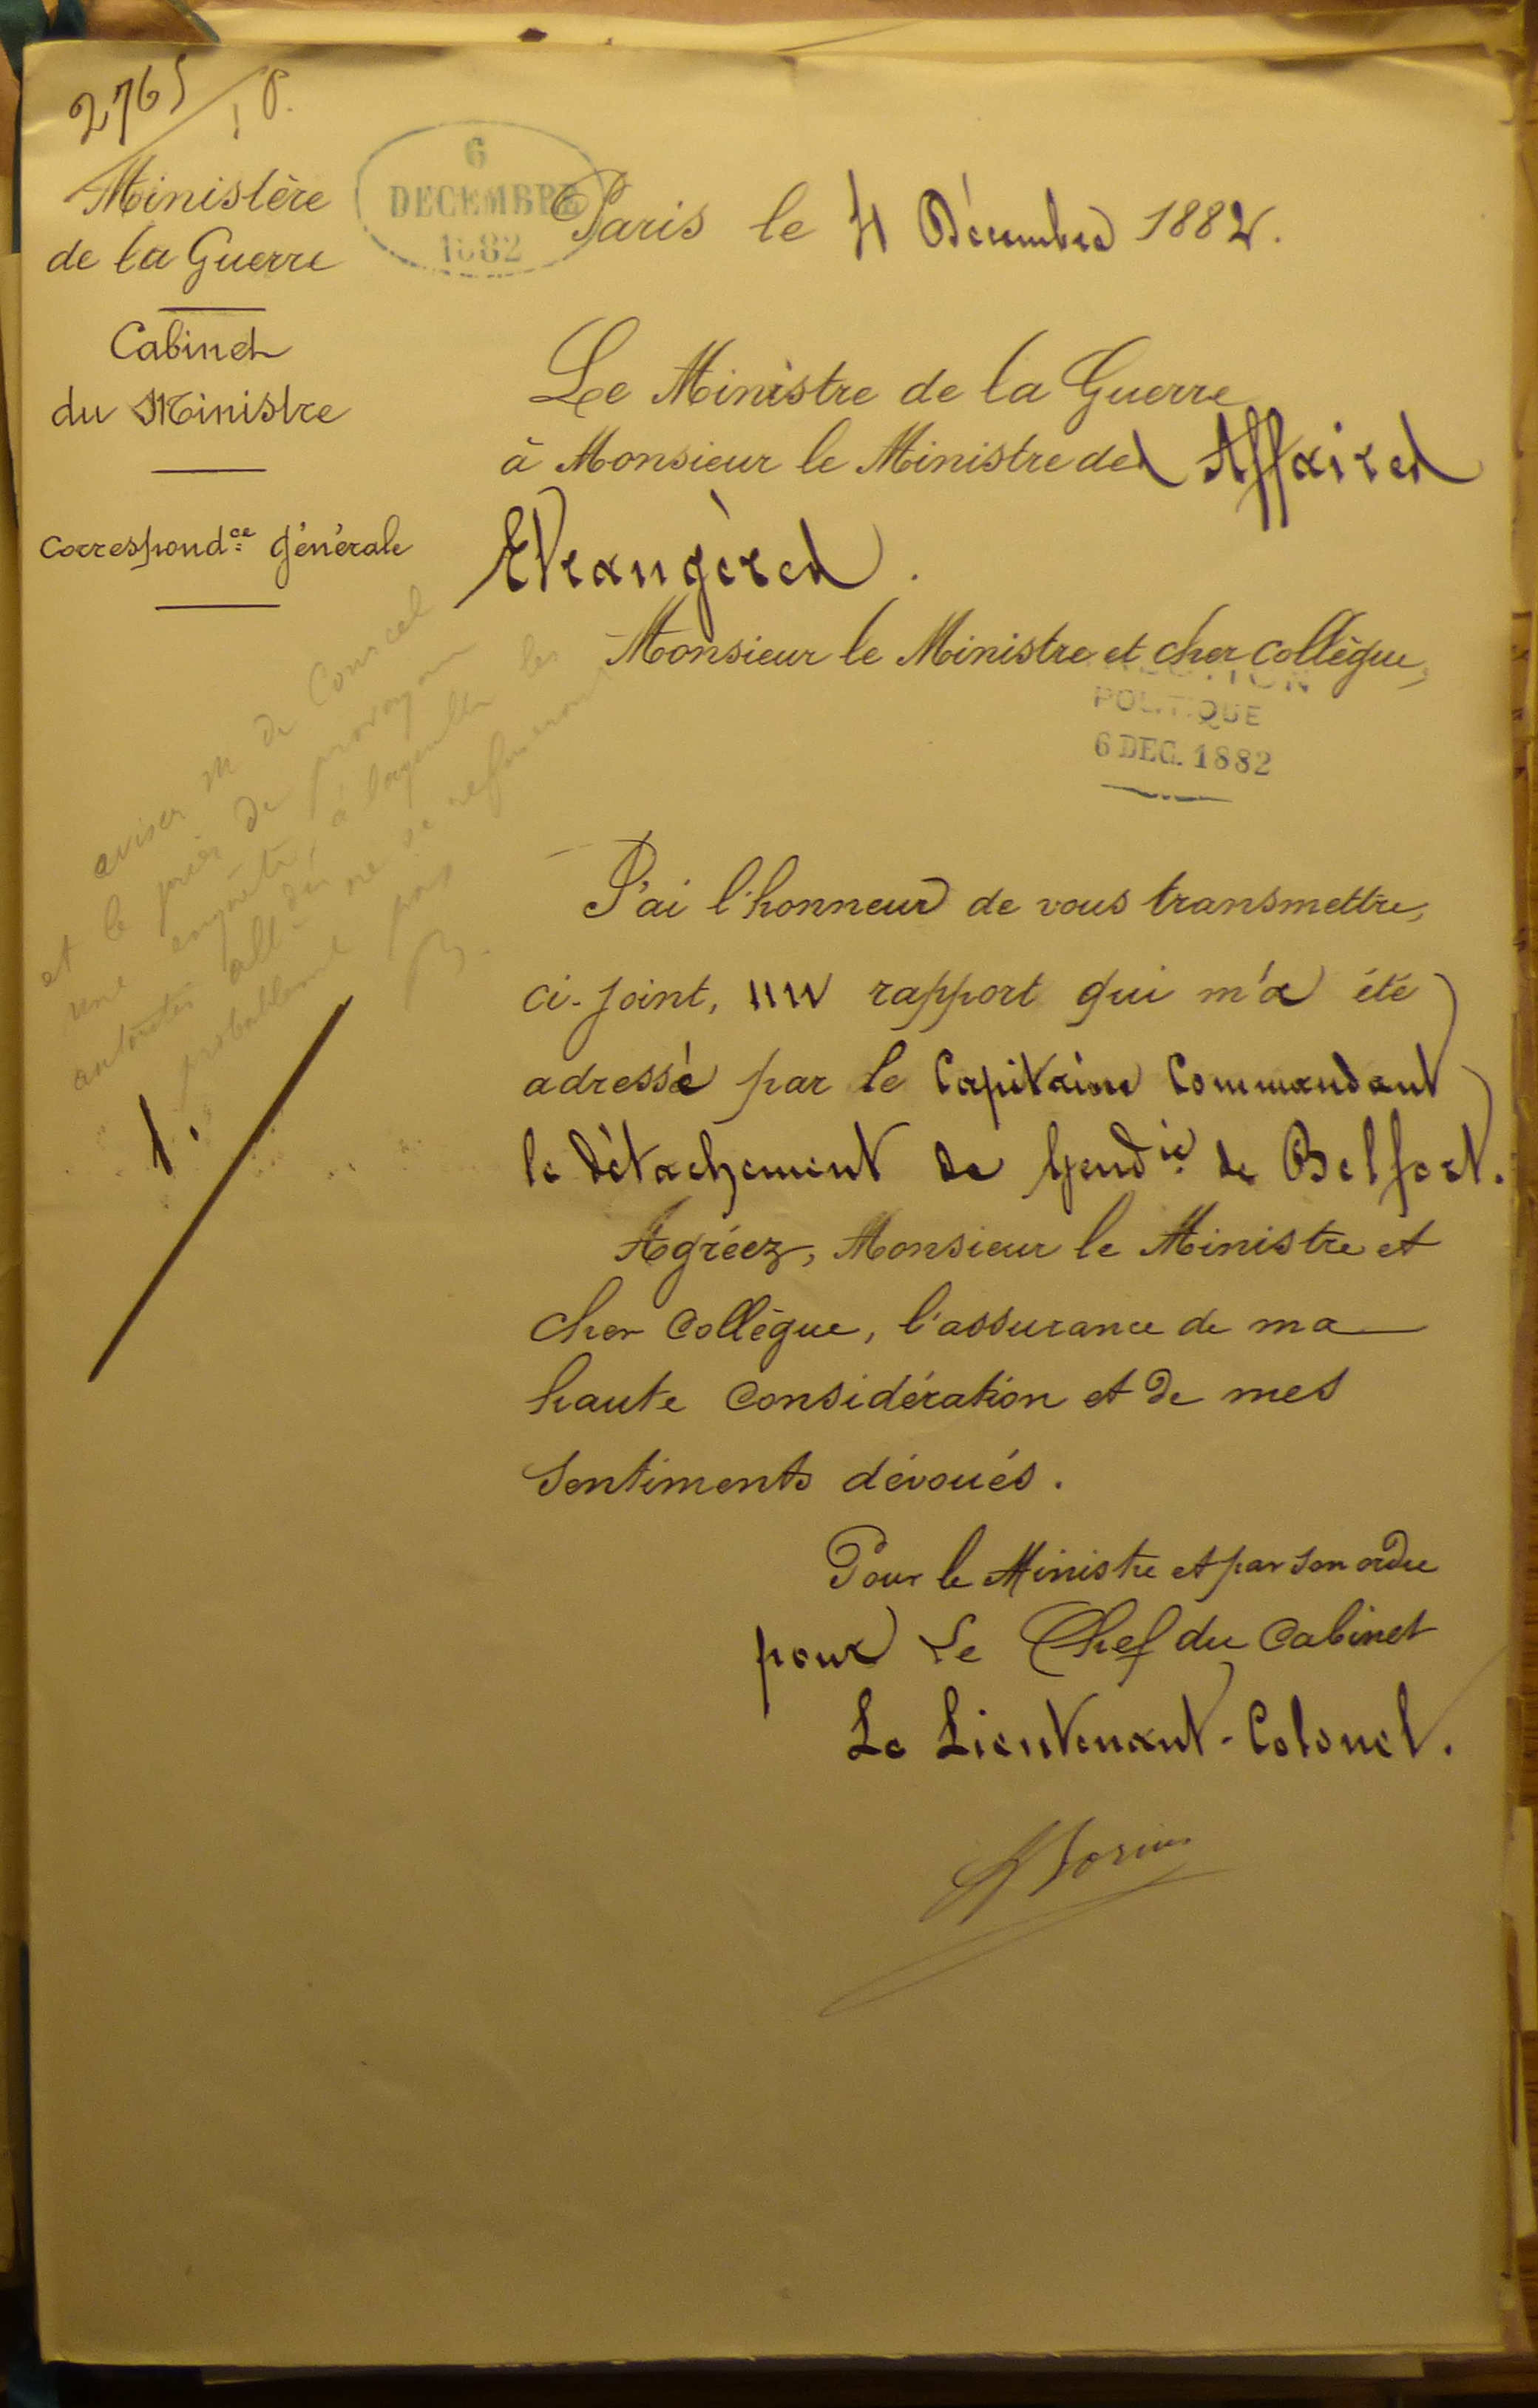 2765
1 P.
Ministère
de la Guerre
Cabinet
du Ministre
Correspond.ce Générale
6
DECEMBRE
1882
Paris le 4 Décembre 1882.
Le Ministre de la Guerre
à Monsieur le Ministre des Affaires
Etrangères.
Monsieur le Ministre et cher collègue,
POLITIQUE
6 DEC. 1882
aviser M de Courcel
et le prier de provoquer
une enquête, à laquelle les
autorités alldes ne se refuseront
probablement pas
B.
J'ai l'honneur de vous transmettre,
ci-joint, un rapport qui m'a été
adressé par le Capitaine Commandant
le détachement de Gendie de Belfort.
Agréez, Monsieur le Ministre et
cher Collègue, l'assurance de ma
haute Considération et de mes
Sentiments dévoués.
Pour le Ministre et par son ordre
pour Le Chef du Cabinet
Le Lieutenant-Colonel.